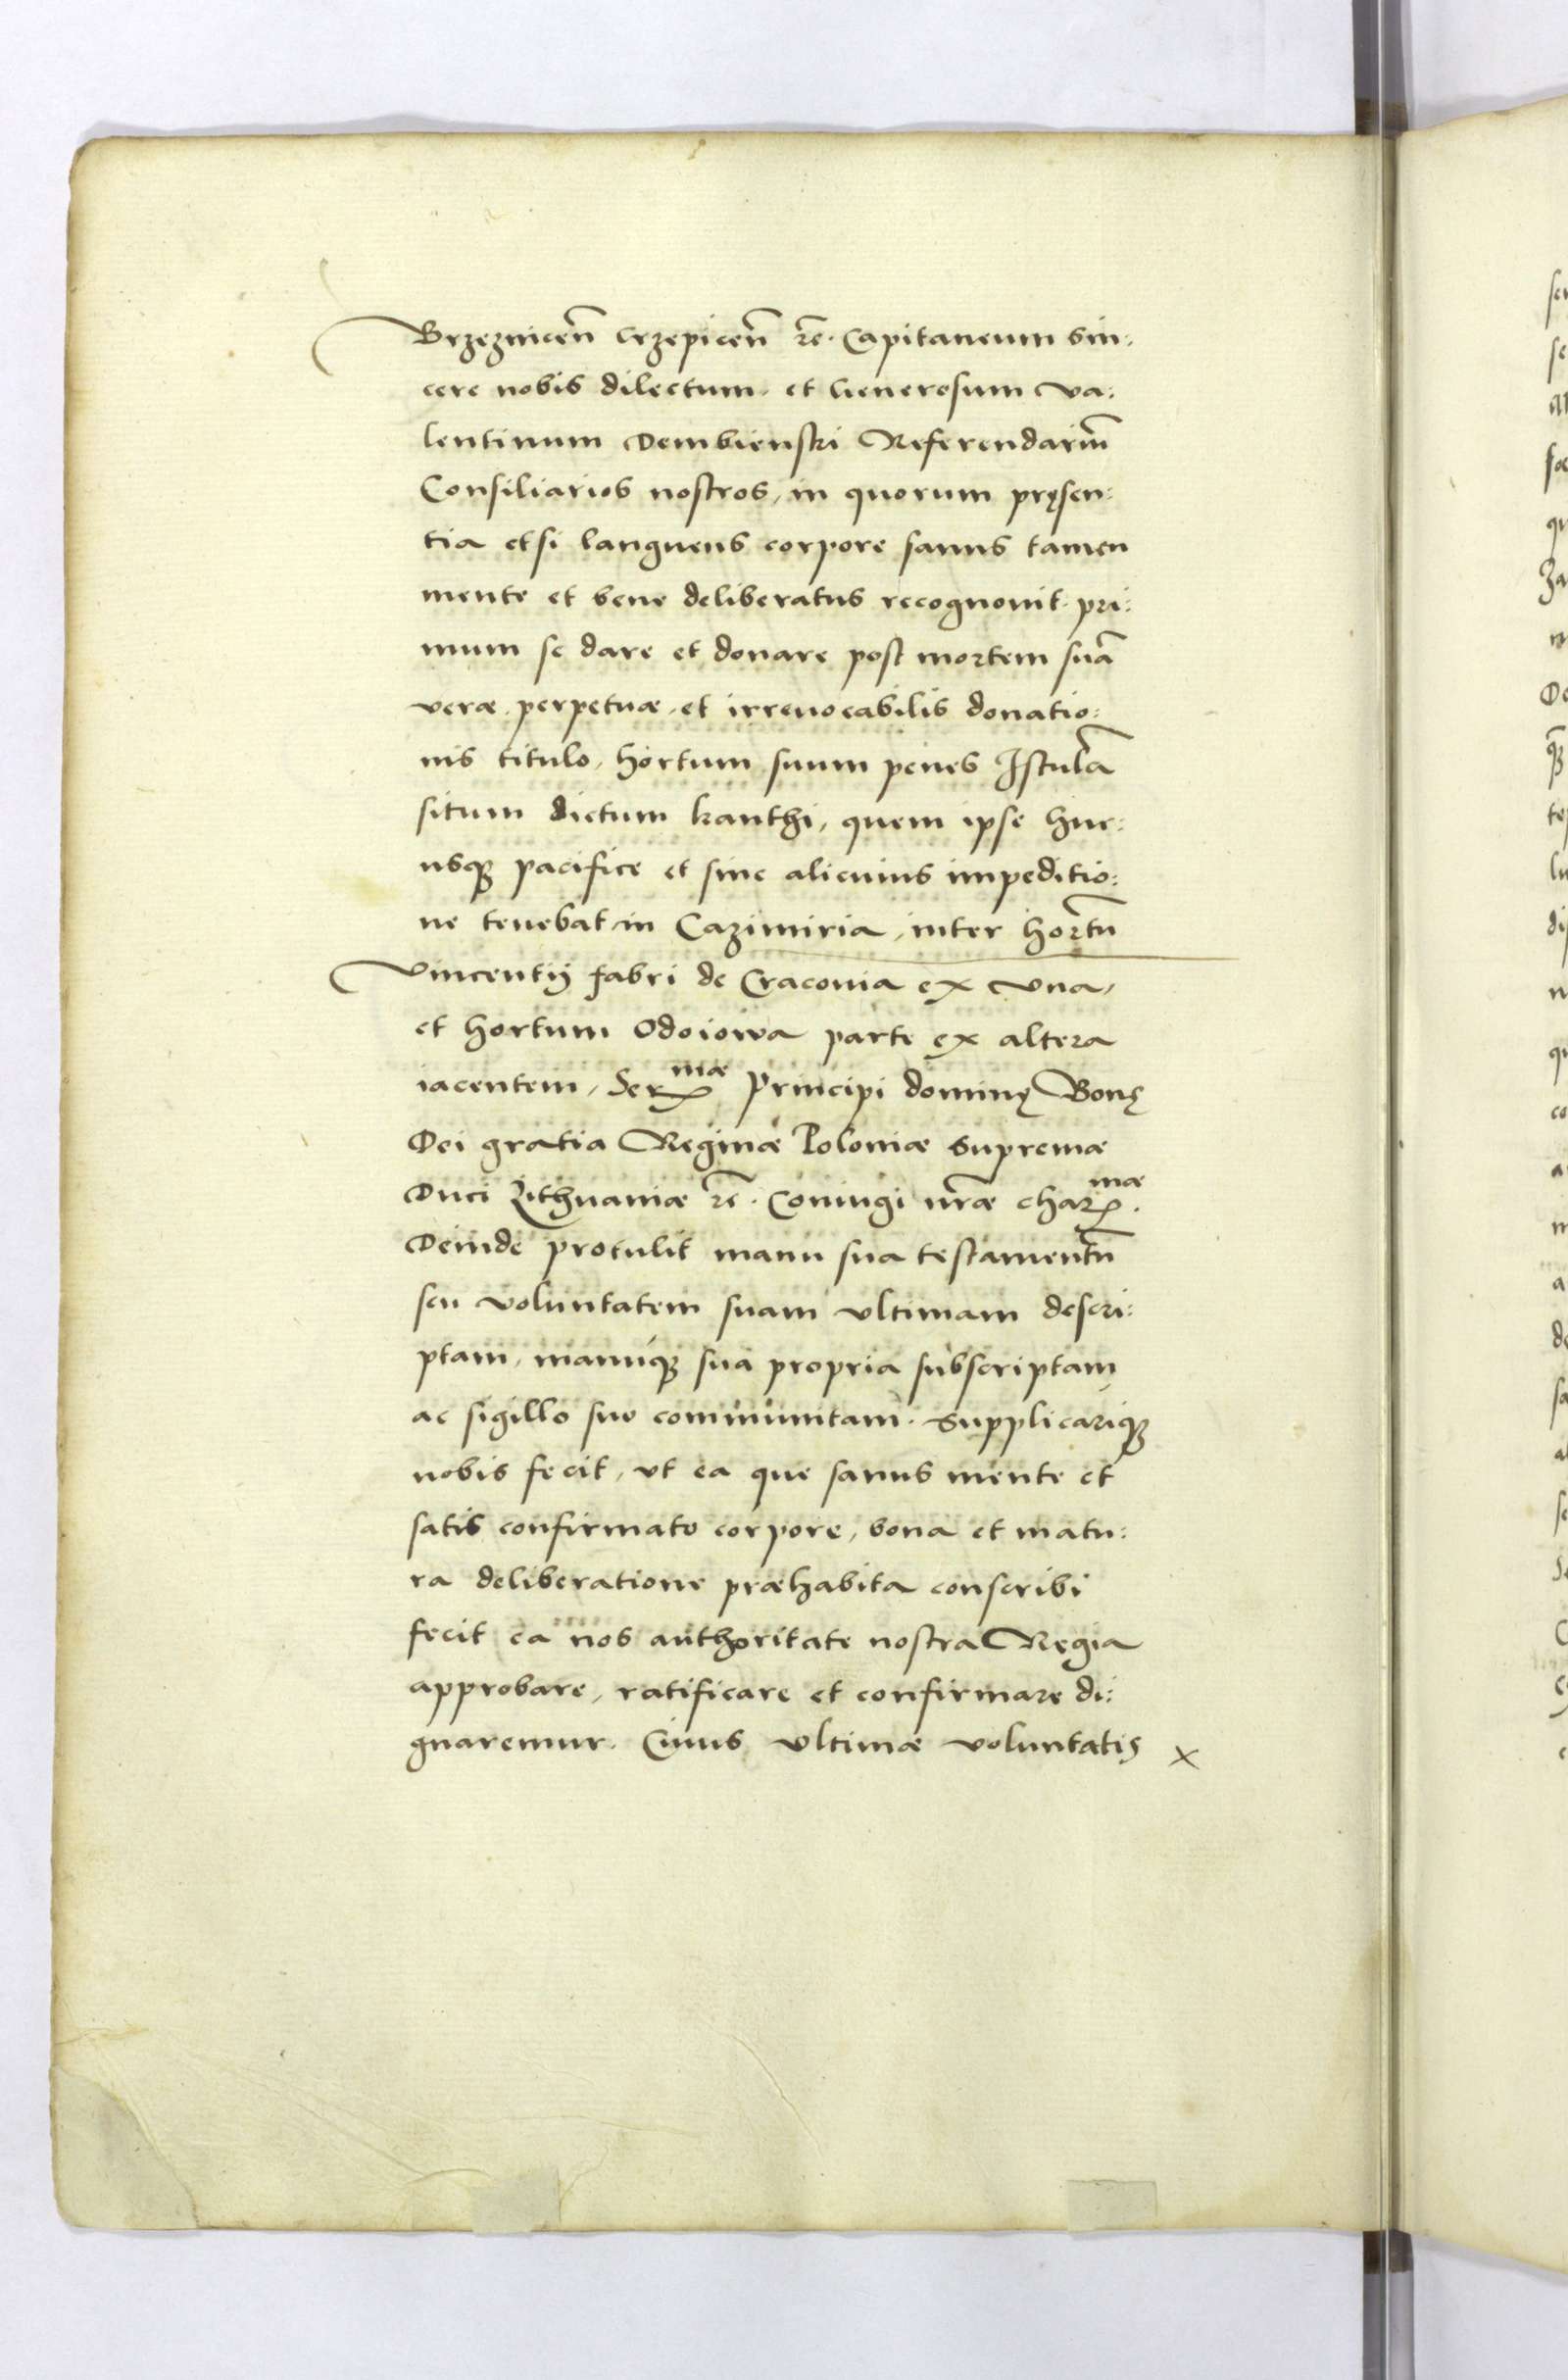 Brzeznicen̄ Crzepicen̄ rē. Capitaneum sin:
cere nobis dilectum, et Generosum Va:
lentinum Dembienski Referendariū
Consiliarios nostros, in quorum pręsen:
tia etsi languens corpore sanus tamen
mente et bene deliberatus recognouit pri:
mum se dare et donare post mortem suā
veræ, perpetuæ, et irreuocabilis donatio:
nis titulo, hortum suum penes Istulā
situm dictum kanthi, quem ipse huc:
usq̃ pacifice et sine alicuius impeditio:
ne tenebat in Cazimiria, inter hortū
Vincentij fabri de Craconia ex vna,
et hortum Odoiowa parte ex altera
iacentem, Ser^mæ Principi dominę Bonę
Dei gratia Reginæ Poloniæ Supremæ
Duci Lithuaniæ rē. Coniugi nr̄æ char^mæ.
Deinde protulit manu sua testamentū
seu voluntatem suam vltimam descri:
ptam, manuq̃ sua propria subscriptam
ac sigillo suo communitam. Supplicariq̃
nobis fecit, vt ea que sanus mente et
satis confirmato corpore, bona et matu:
ra deliberatione præhabita conscribi
fecit ea nos authoritate nostra Regia
approbare, ratificare et confirmare di:
gnaremur. Cuius vltimæ voluntatis x